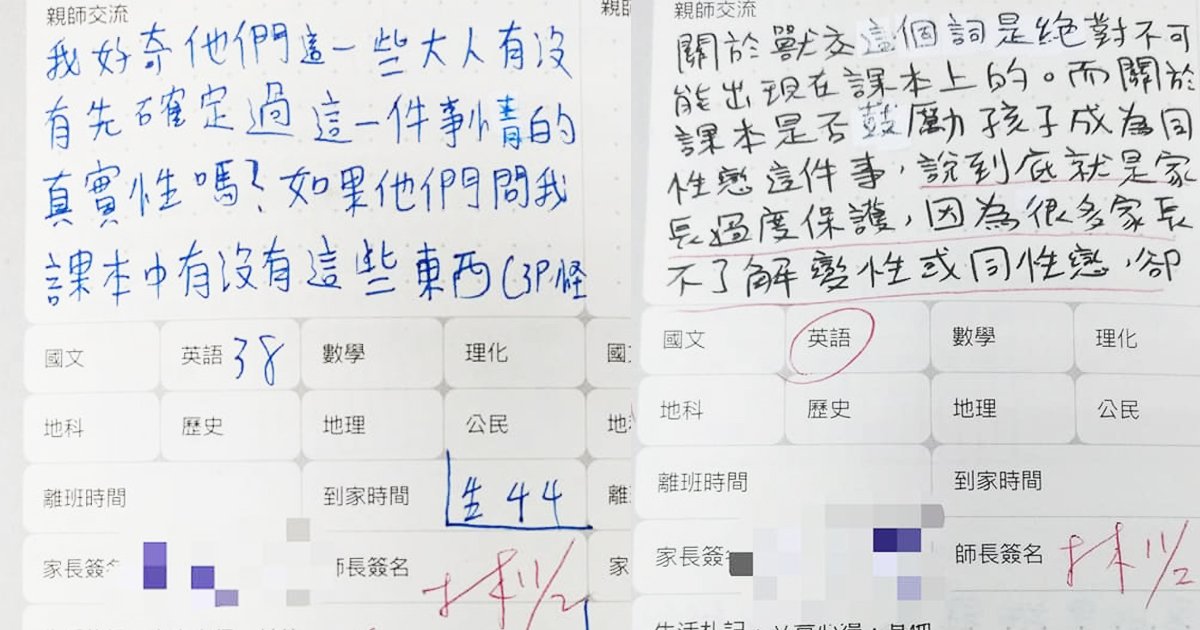 親師交流
我好奇他們這一些大人有沒
有先確定過這一件事情的
真實性嗎?如果他們問我
課本中有沒有這些東西(3P怪
國文
英語 38
數學
理化
地科
歷史
地理
公民
離班時間
到家時間
生 44
家長簽
師長簽名
林11/2
親師
國
地
離
家
親師交流
關於獸交這個詞是絕對不可
能出現在課本上的。而關於
課本是否鼓勵孩子成為同
性戀這件事,說到底就是家
長過度保護,因為很多家長
不了解變性或同性戀,卻
國文
英語
數學
理化
地科
歷史
地理
公民
離班時間
到家時間
家長簽
師長簽名
林11/2